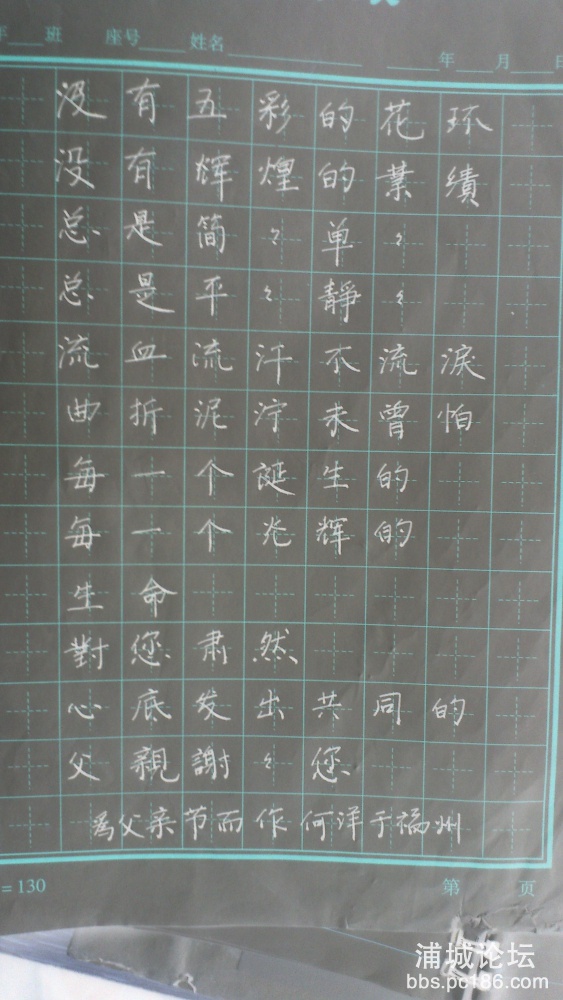 年 班 座号 姓名 年 月 日
没有五彩的花环
没有辉煌的業績
总是简々单々
总是平々靜々
流血流汗不流淚
曲折泥泞未曾怕
每一个誕生的
每一个光辉的
生命
對您肃然
心底发出共同的
父親謝々您
爲父亲节而作何洋于福州
=130 第 页
浦城论坛
bbs.pc186.com